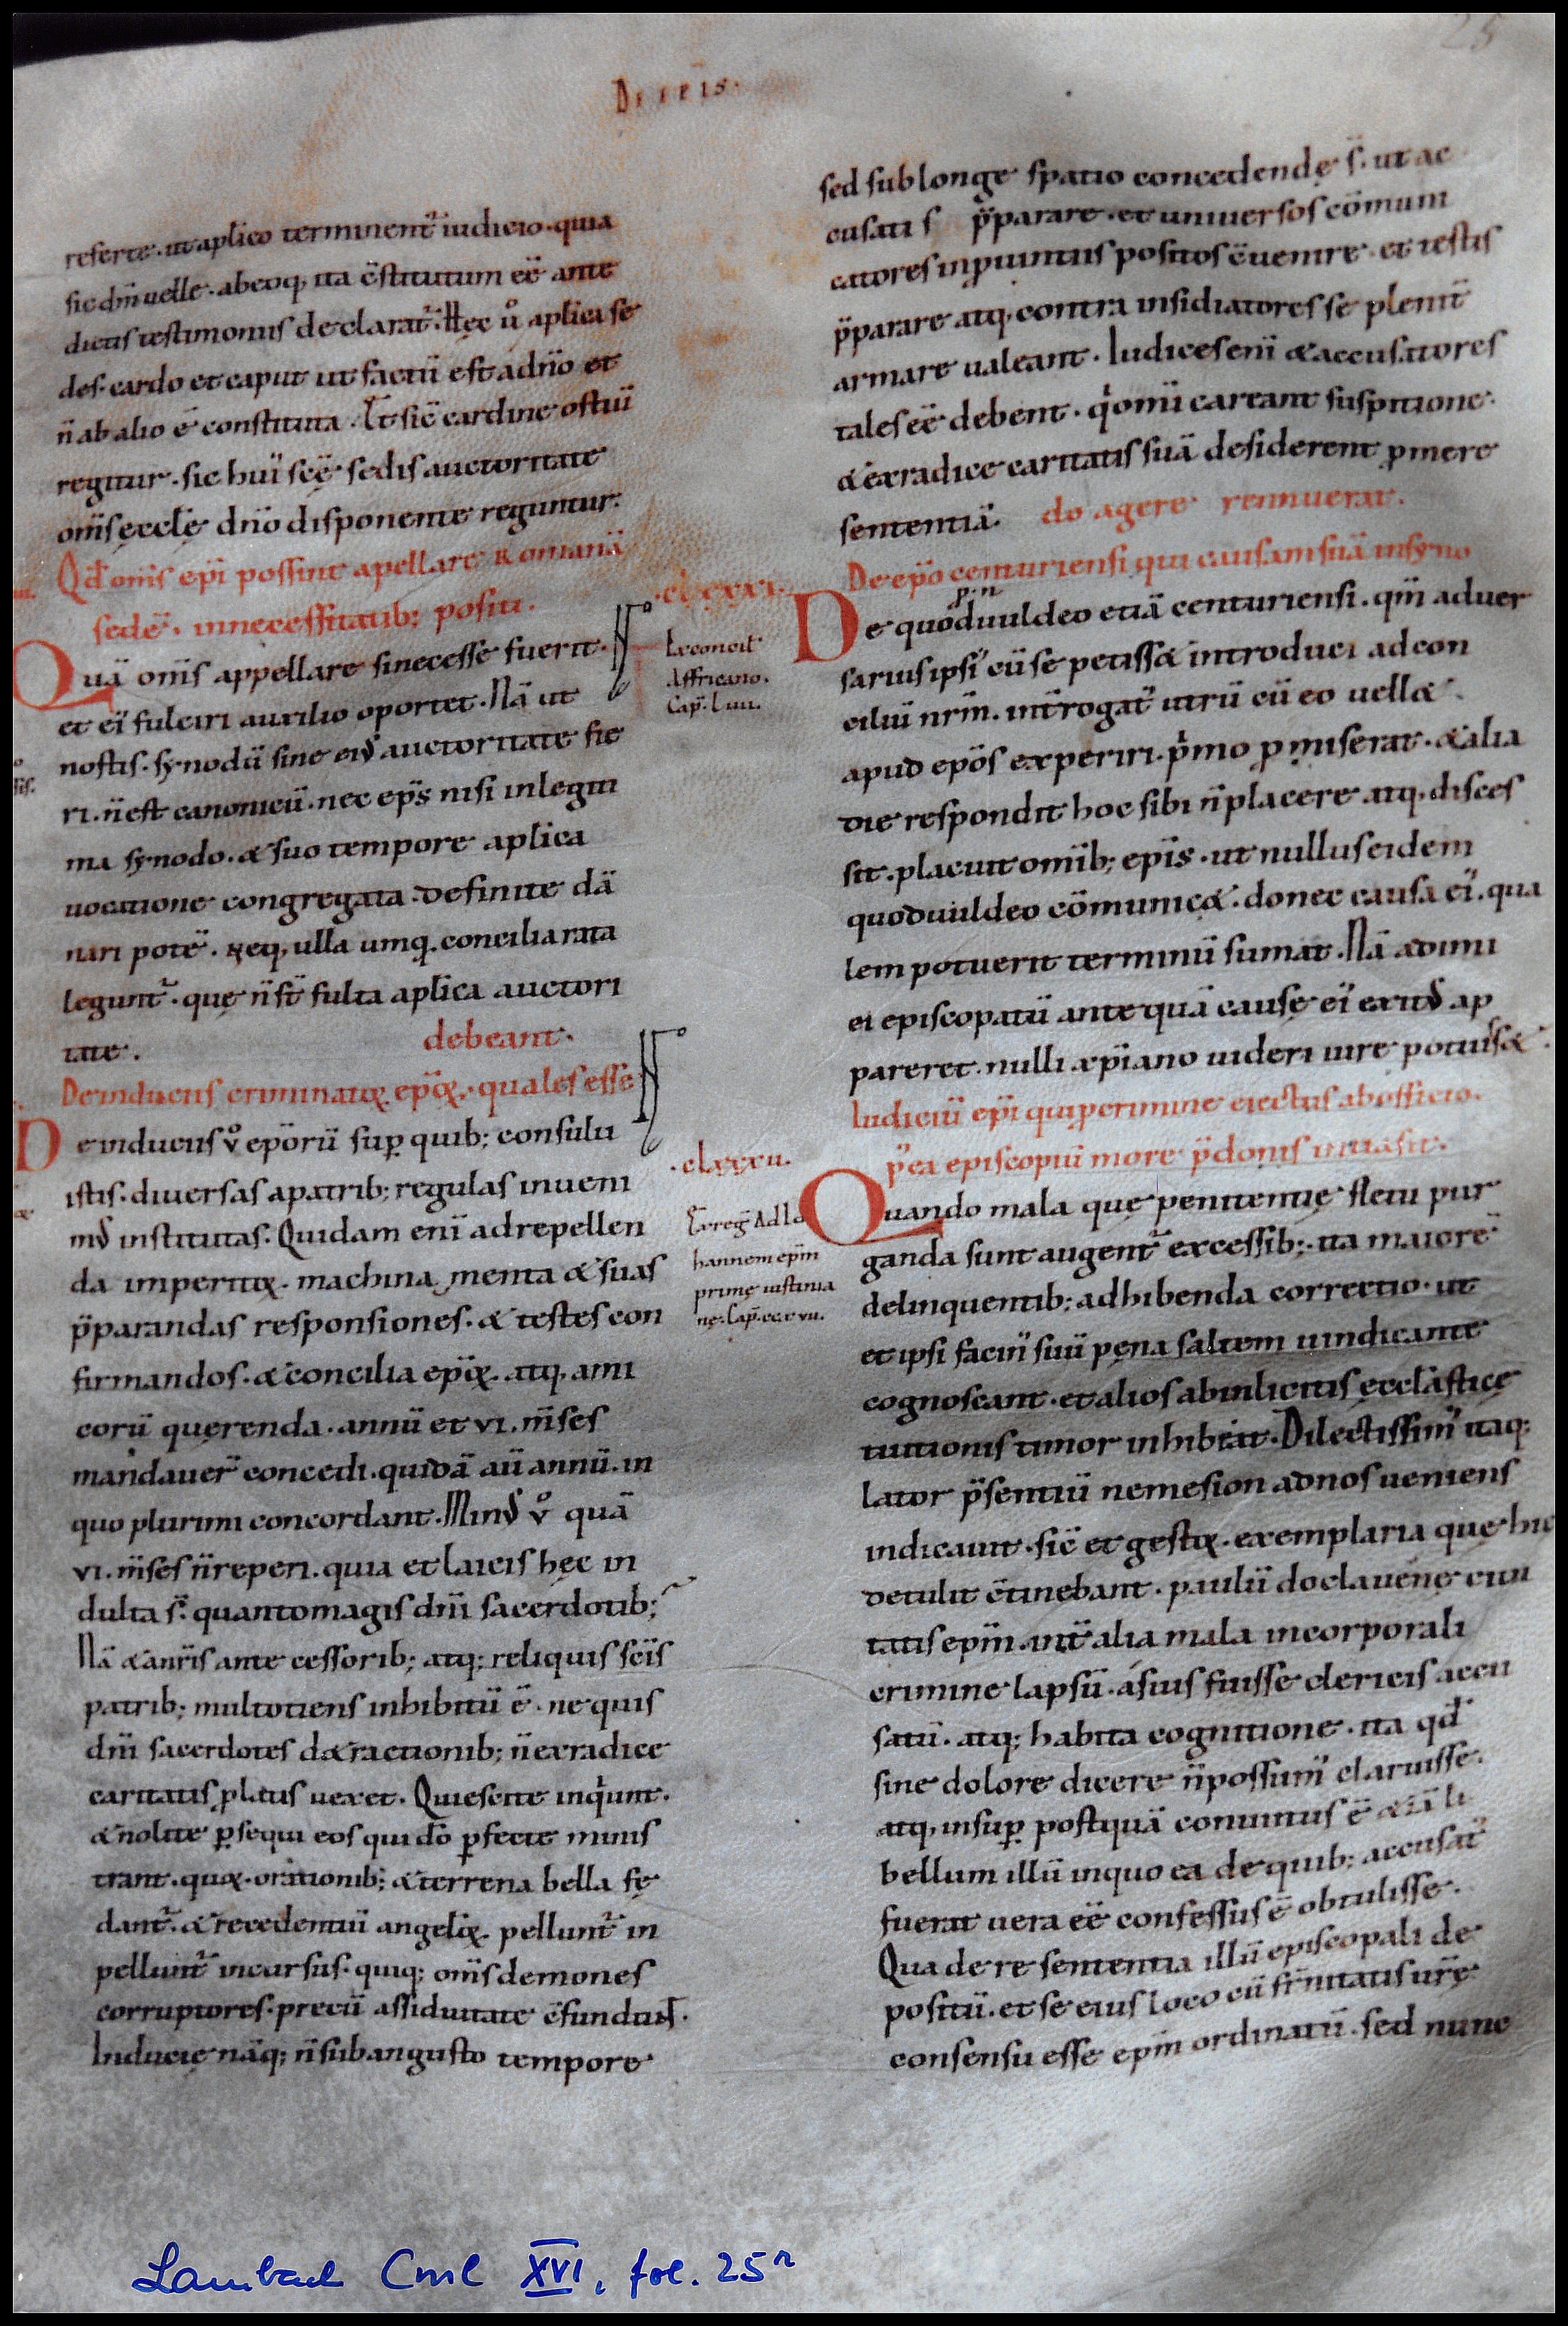 25
referte. ut aplico terminent᷑ iudicio. quia
sic dn̄m uelle. ab eoq; ita c̄stitutum eē ante
dictis testimoniis declarat᷑. Hęc ů aplica se
des. cardo et caput ut factū est a dn̄o et
n̄ ab alio ē constituta. Et sic̄ cardine ostiū
regitur. sic hui᷒ scę̄ sedis auctoritate
om̄s ęcclę̄ dn̄o disponente reguntur.
Qd̄ om̄is ep̄i possint apellare Romanā
sedē. in necessitatib; positi.
Quā om̄is appellare si necesse fuerit.
et ei᷒ fulciri auxilio oportet. Nā ut
nostis. synodū sine ei᷒ auctoritate fie
ri. n̄ est canonicū. nec ep̄s nisi in legiti
ma synodo. & suo tempore aplica
uocatione congregata. definite dā
nari potē. Neq; ulla umq̄. concilia rata
legunt᷑. quę n̄ st̄ fulta aplica auctori
tate.
debeant.
De induciis criminatoꝝ ep̄oꝝ. quales esse
De induciis ů ep̄orū suꝑ quib; consulu
istis. diuersas a patrib; regulas inueni
m᷒ institutas. Quidam enī ad repellen
da impetitoꝝ. machinamenta & suas
p̄parandas responsiones. & testes con
firmandos. & concilia ep̄oꝝ. atq; ami
corū querenda. annū et vi. m̄ses
mandauer̄ concedi. quidā aū annū. in
quo plurimi concordant. Min᷒ ů quā
vi. m̄ses n̄ reperi. quia et laicis hęc in
dulta s̄. quanto magis dn̄i sacerdotib;
Nā & a nr̄is ante cessorib; atq; reliquis scīs
patrib; multotiens inhibitū ē. ne quis
dn̄i sacerdotes d&ractionib; n̄ ex radice
caritatis ꝓlatis uexet. Quiescite inqͥunt.
& nolite ꝑsequi eos qui dō ꝑfecte minis
trant. quoꝝ. orationib; & terrena bella sę
dant᷑. & recedentiū angeloꝝ. pellunt᷑ in
pellunt᷑ incursus. quiq; om̄s demones
corruptores. precū assiduitate c̄fundunt.
Inducię nāq; n̄ sub angusto tempore
.clxxxi.
Ex concil̄
Affricano.
Cap̄. Liiii.
.clxxxii.
Ex reḡ Ad Io
hannem ep̄m
primę iustinia
nę. Cap̄. ccxvii.
sed sub longe spatio concedendę s̄. ut ac
cusati s p̄parare. et uniuersos cōmuni
catores in puintiis positos c̄uenire. et testis
p̄parare atq; contra insidiatores se plenit᷑
armare ualeant. Iudices enī & accusatores
tales eē debent. qͥ omī careant suspitione.
& ex radice caritatis suā desiderent ꝓmere
sententiā. do agere rennuerat.
De ep̄o centuriensi qui causam suā in syno
De quoduuldeo etiā centuriensi. qm̄ aduer
sarius ipsi᷒ cū se petiss& introduci ad con
ciliū nr̄m. int̄rogat᷑ utrū cū eo uell&
apud ep̄os experiri. pͥmo ꝓmiserat. & alia
die respondit hoc sibi n̄ placere atq; disces
sit. placuit om̄ib; ep̄is. ut nullus eidem
quoduuldeo cōmunic&. donec causa ei᷒. qua
lem potuerit terminū sumat. Nā adimi
ei episcopatū ante quā causę ei᷒ exit᷒ ap
pareret. nulli xp̄iano uideri iure potuiss&.
Iudiciū ep̄i qui ꝑ crimine eiectus ab officio.
p᷒ ea episcopiū more p̄donis inuasit.
Quando mala que penitentię fletu pur
ganda sunt augent᷑ excessib;. ita maiore
delinquentib; adhibenda correctio. ut
et ipsi facin᷒ suū pęna saltem uindicante
cognoscant. et alios ab inlicitis ęccl̄asticę
tuitionis timor inhibeat. Dilectissim᷒ itaq;
lator p̄sentiū nemesion ad nos ueniens
indicauit. sic̄ et gestoꝝ. exemplaria quę hic
detulit c̄tinebant. paulū doclauene ciui
tatis ep̄m. int᷑ alia mala in corporali
crimine lapsū. a suis fuisse clericis accu
satū. atq; habita cognitione. ita qd̄
sine dolore dicere n̄ possum᷒ claruisse.
atq; insuꝑ postquā conuictus ē & iā li
bellum illū in quo ea de quib; accusat᷒
fuerat uera eē confessus ē obtulisse.
Qua de re sententia illū episcopali de
positū. et se eius loco cū fr̄nitatis ur̄ę
consensu esse ep̄m ordinatū. sed nunc
Lambach Cml XVI, fol. 25r